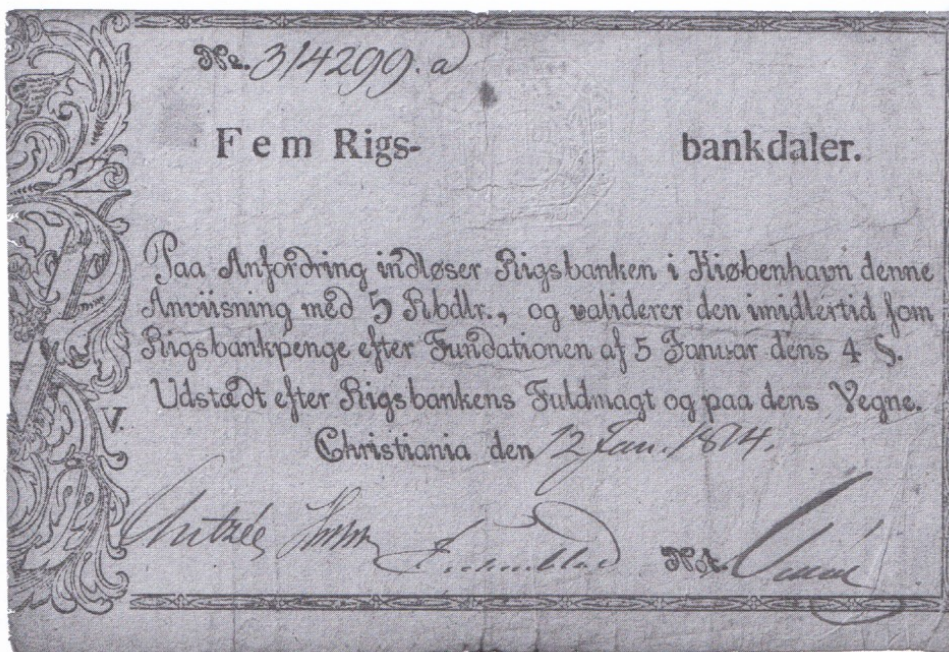 No. 314299.a
Fem Rigs- bankdaler.
Paa Anfordring indløser Rigsbanken i Kiøbenhavn denne
Anviisning med 5 Rbdlr., og validerer den imidlertid som
Rigsbankpenge efter Fundationen af 5 Januar dens 4 §.
V. Udstædt efter Rigsbankens Fuldmagt og paa dens Vegne.
Christiania den 12 Jan. 1814.
Not.